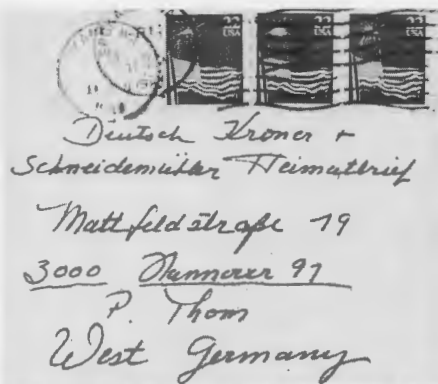 22 USA 22 USA 22 USA
Deutsch Kroner +
Schneidemühler Heimatbrief
Mattfeldstraße 19
3000 Hannover 91
P. Thom
West Germany